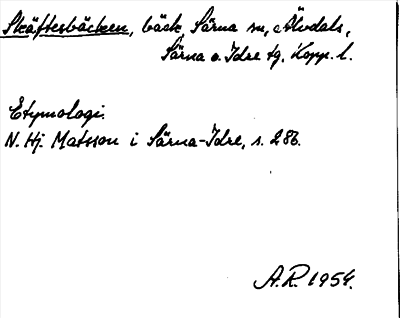 Skäftesbäcken, bäck, Särna sn, Älvdals,
Särna o. Idre tg. Kopp. l.
Etymologi.
N. Hj. Matsson i Särna-Idre, s. 286.
A.R. 1954.